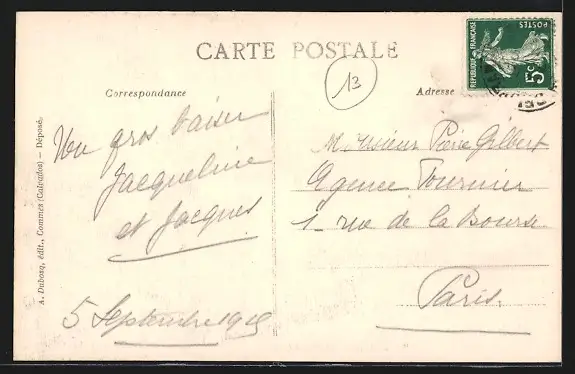 CARTE POSTALE
13
REPUBLIQUE FRANÇAISE
POSTES
5c
Correspondance
Adresse
Un gros baiser
Jacqueline
et Jacques
5 Septembre
Monsieur Pierre Gilbert
Agence Fournier
1 rue de la Bourse
Paris
A. Dubosq, édit., Commes (Calvados) — Déposé.